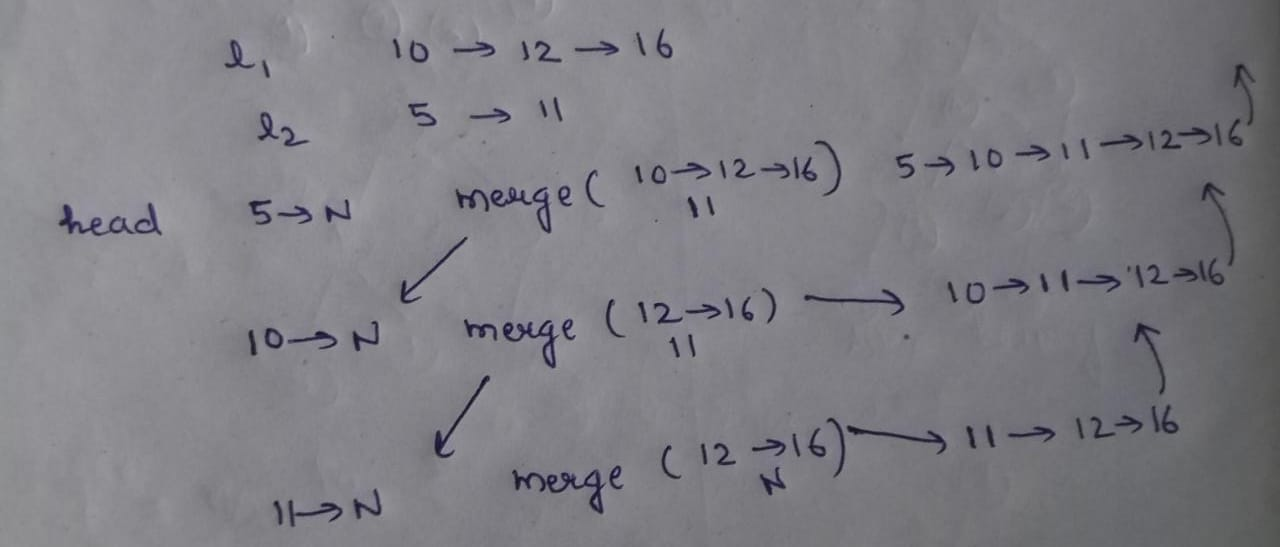 l₁ 10 → 12 → 16
l2 5 → 11
head 5→N merge ( 10→12→16 ) 5→10→11→12→16
11
10→N merge ( 12→16 ) → 10→11→12→16
11
11→N merge ( 12→16 ) → 11→12→16
N